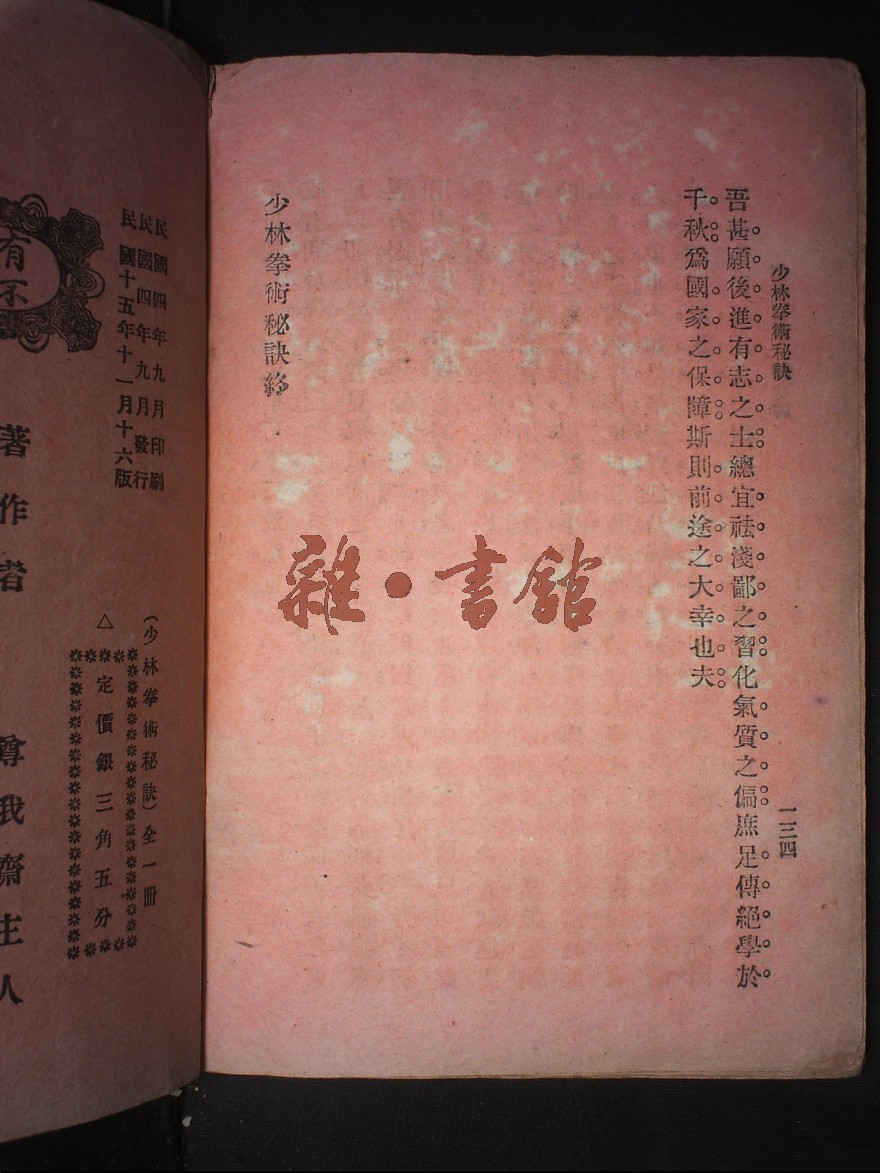 少林拳術秘訣
一三四
吾甚願後進有志之士總宜祛淺鄙之習化氣質之偏庶足傳絕學於
千秋爲國家之保障斯則前途之大幸也夫
少林拳術秘訣終
雜·書館
民國四年九月印刷
民國四年九月發行
民國十五年十一月十六版
(少林拳術秘訣)全一冊
△定價銀三角五分
有不
著作者 尊我齋主人